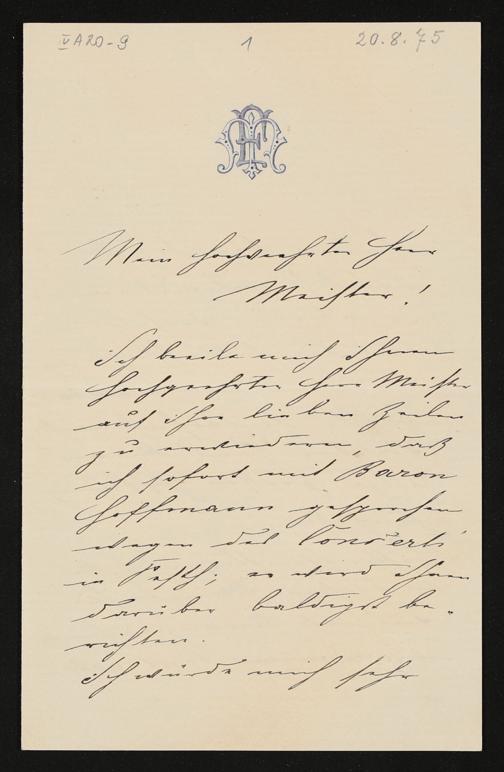 IV A20-9 1 20.8.75
Mein hochverehrter Herr
Meister!
Ich beeile mich Ihnen
hochgeehrter Herr Meister
auf Ihre lieben Zeilen
zu erwiedern, daß
ich sofort mit Baron
Hoffmann gesprochen
wegen des Concerts
in Pesth; er wird Ihnen
darüber baldigst be-
richten.
Ich würde mich sehr